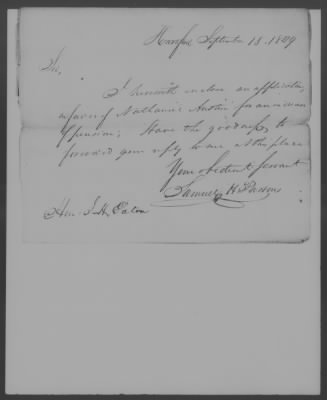 Hartford September 18. 1829
Sir,
I herewith enclose an application
in favor of Nathaniel Austin for an
Pension; Have the goodness to
forward your reply to me at this place
Your obedient servant
Samuel H Parsons
Hon. J. H. Eaton